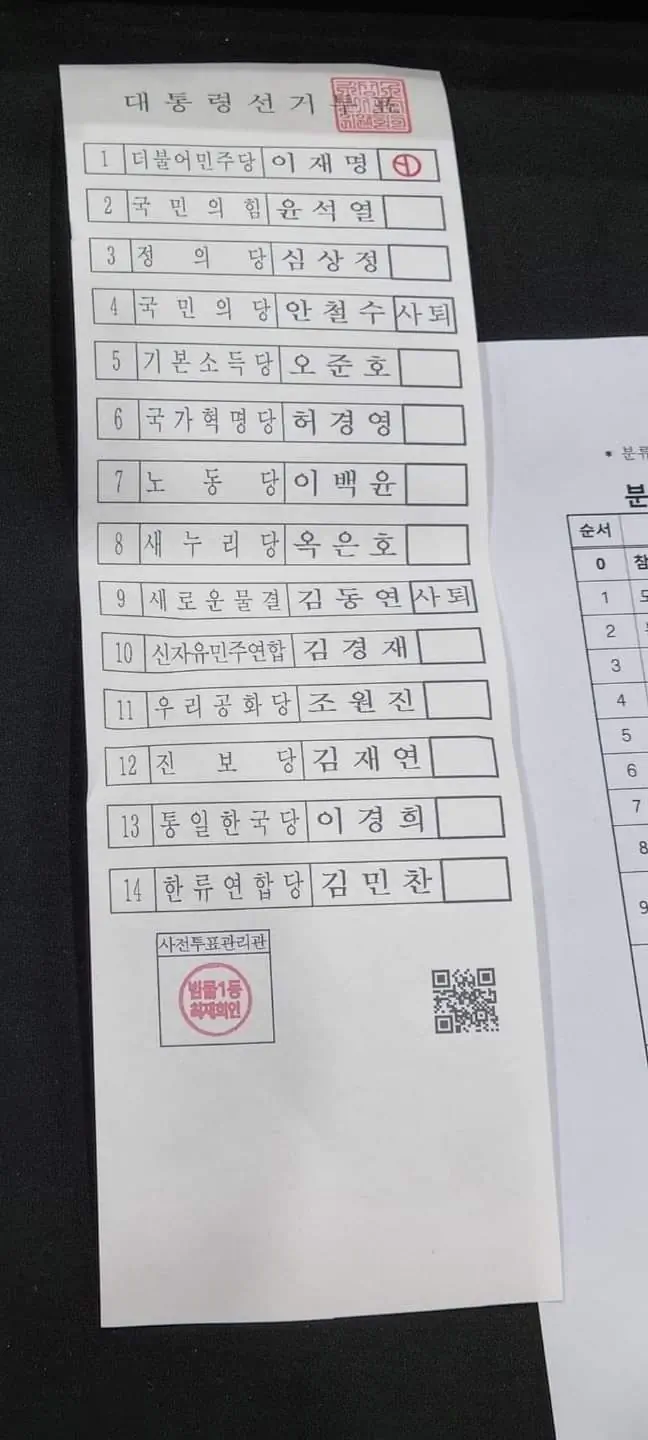 대통령선거투표
1 더불어민주당 이재명
2 국민의힘 윤석열
3 정의당 심상정
4 국민의당 안철수 사퇴
5 기본소득당 오준호
6 국가혁명당 허경영
7 노동당 이백윤
8 새누리당 옥은호
9 새로운물결 김동연 사퇴
10 신자유민주연합 김경재
11 우리공화당 조원진
12 진보당 김재연
13 통일한국당 이경희
14 한류연합당 김민찬
사전투표관리관
범물1동
* 분류
순서
0 참
1
2
3
4
5
6
7
8
9